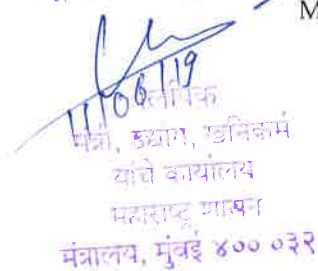 M
11/06/19
लिपिक
मंत्री, उद्योग, खनिकर्म
यांचे कार्यालय
महाराष्ट्र शासन
मंत्रालय, मुंबई ४०० ०३२